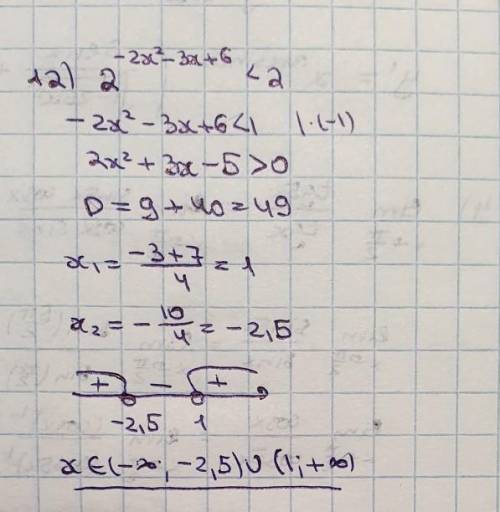 12) 2^{-2x²-3x+6} < 2
-2x² - 3x + 6 < 1 | · (-1)
2x² + 3x - 5 > 0
D = 9 + 40 = 49
x₁ = \frac{-3+7}{4} = 1
x₂ = -\frac{10}{4} = -2,5
+ - +
-2,5 1
x ∈ (-∞; -2,5) ∪ (1; +∞)